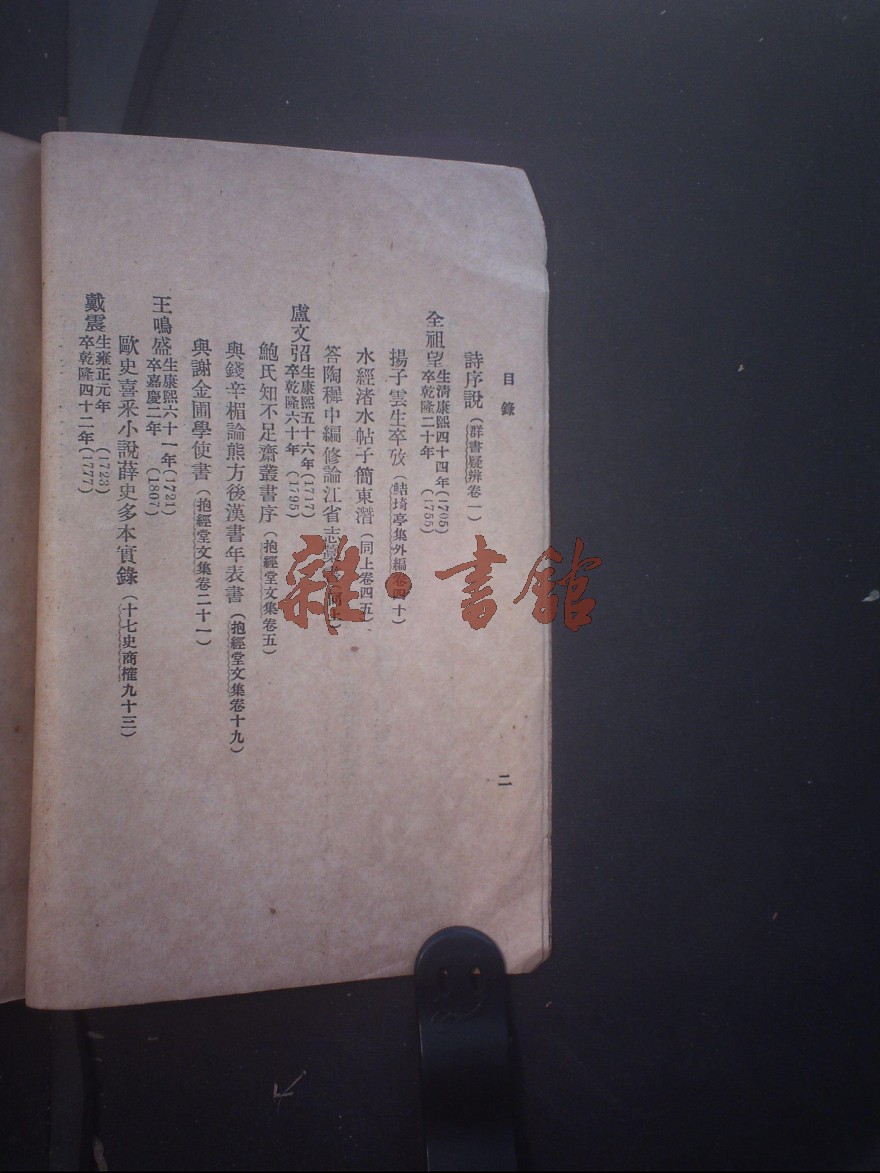 目錄
二
詩序說（群書疑辨卷一）
全祖望 生清康熙四十四年（1705）
卒乾隆二十年（1755）
揚子雲生卒攷（鮚埼亭集外編卷四十）
水經渚水帖子簡東潛（同上卷四五）
答陶穉中編修論江省志
盧文弨 生康熙五十六年（1717）
卒乾隆六十年（1795）
鮑氏知不足齋叢書序（抱經堂文集卷五）
與錢辛楣論熊方後漢書年表書（抱經堂文集卷十九）
與謝金圃學使書（抱經堂文集卷二十一）
王鳴盛 生康熙六十一年（1721）
卒嘉慶二年（1807）
歐史喜釆小說薛史多本實錄（十七史商榷九十三）
戴震 生雍正元年（1723）
卒乾隆四十二年（1777）
雜·書館